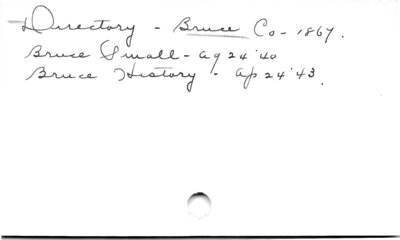 Directory - Bruce Co - 1867.
Bruce Small - ag 24 '40
Bruce History - ap 24 '43.